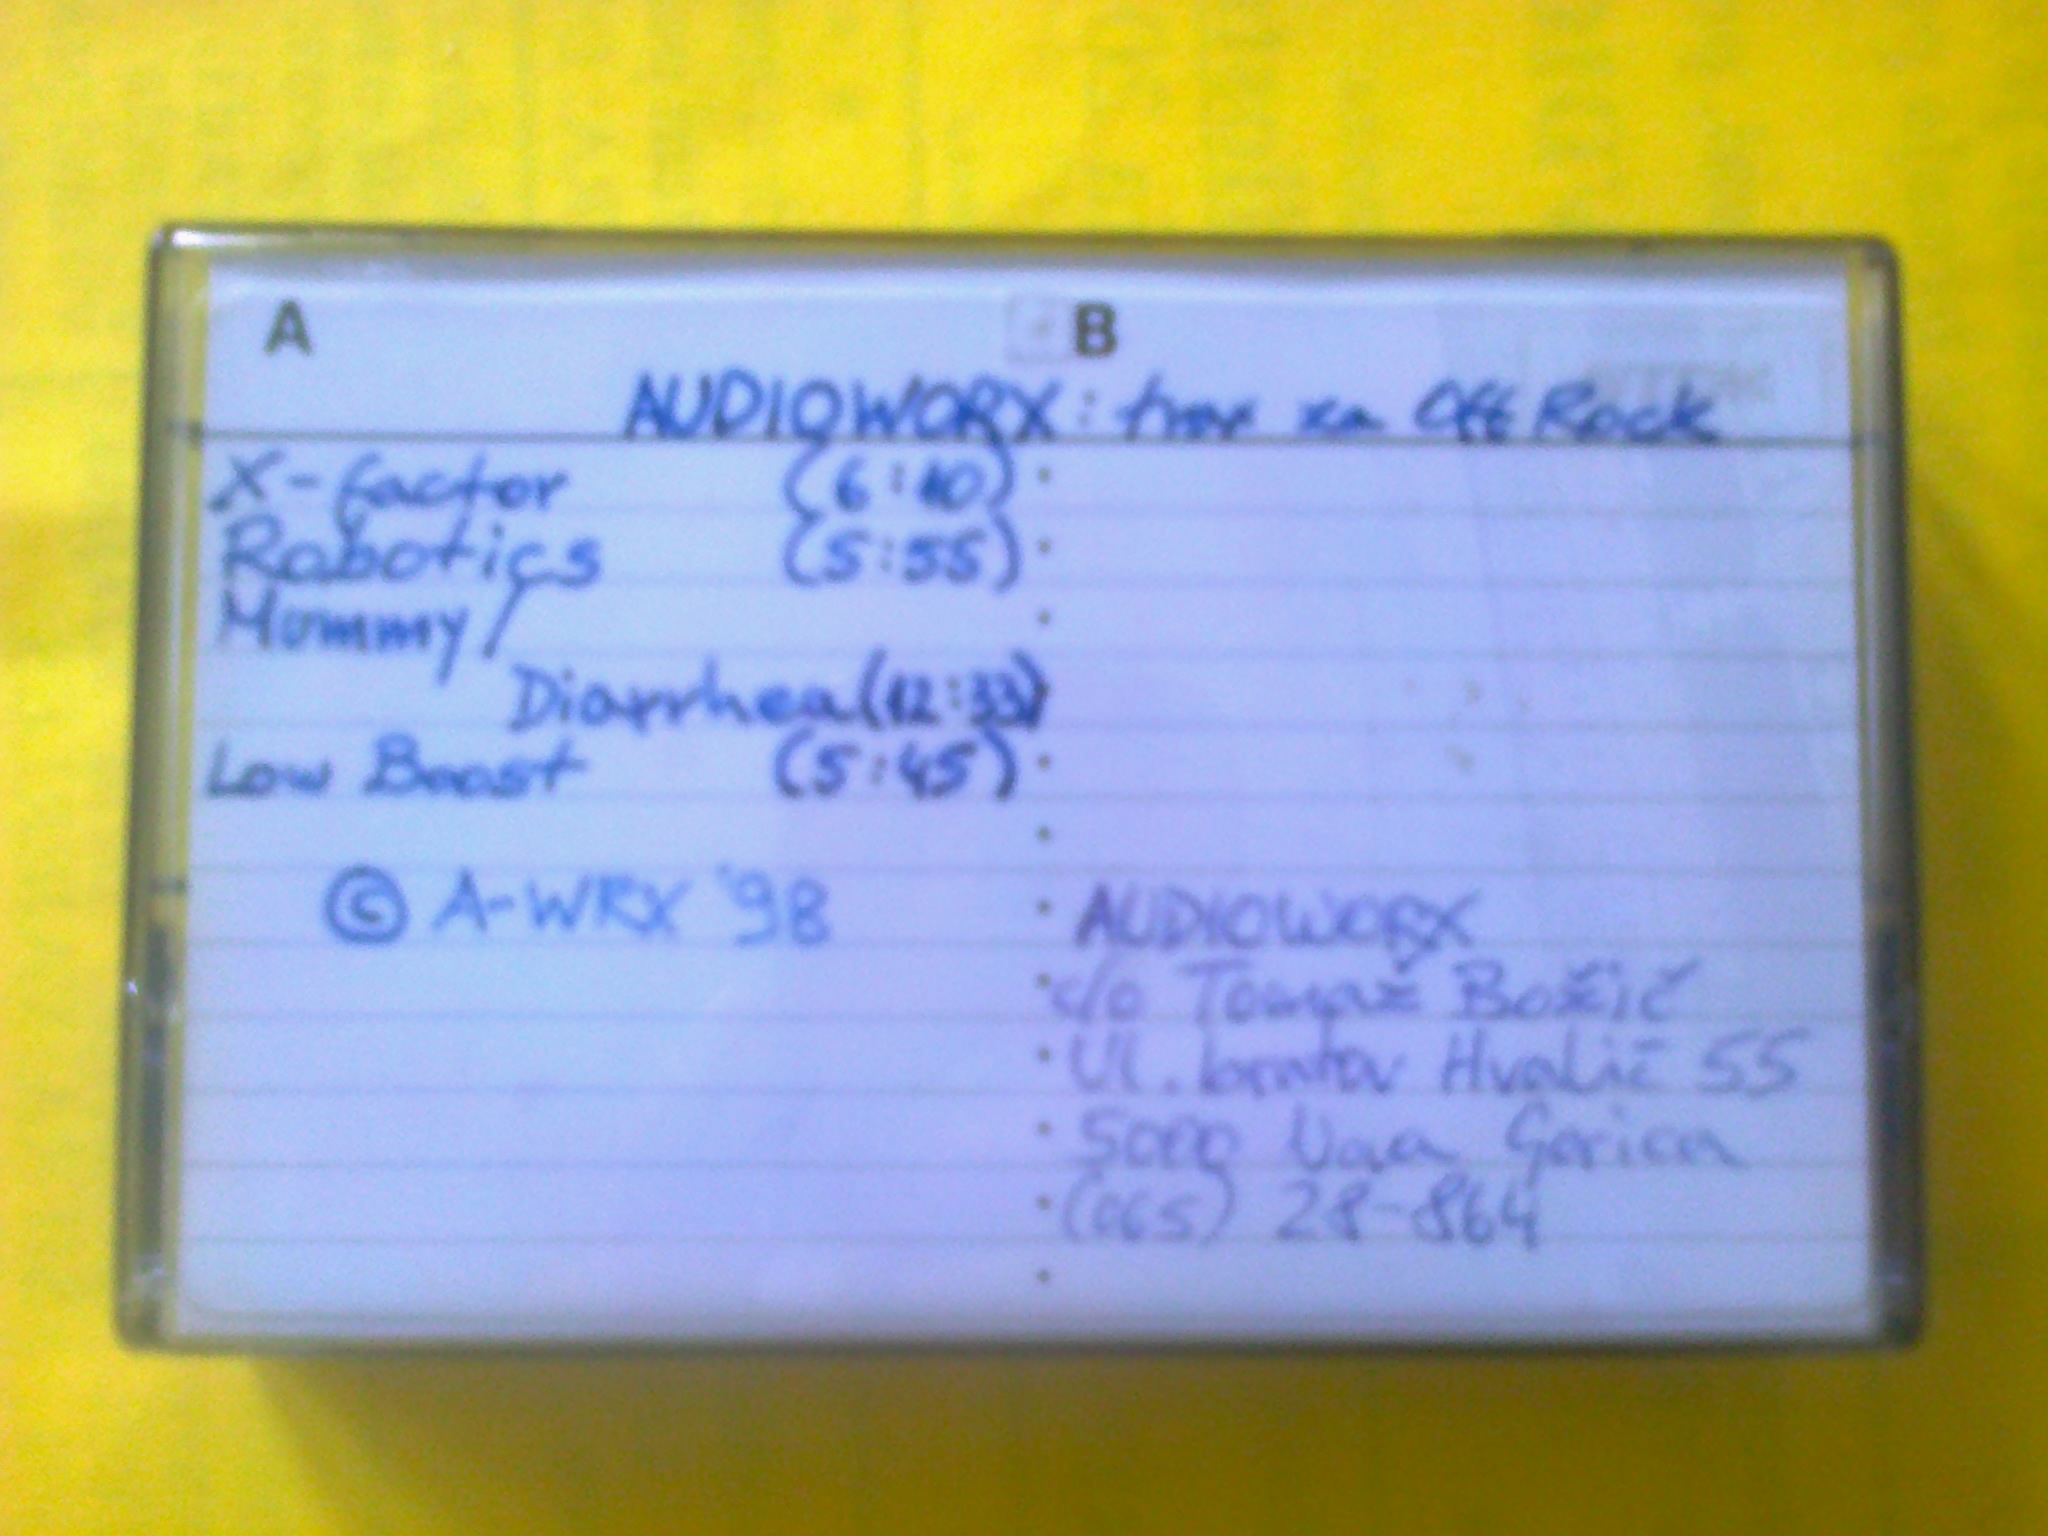 A B
AUDIOWORX: trax za Off Rock
X-factor (6:10)
Robotics (5:55)
Mummy/
Diarrhea (12:33)
Low Boost (5:45)
© A-WRX '98
AUDIOWORX
c/o Tomaž Božič
Ul. bratov Hvalič 55
5000 Nova Gorica
(065) 28-864